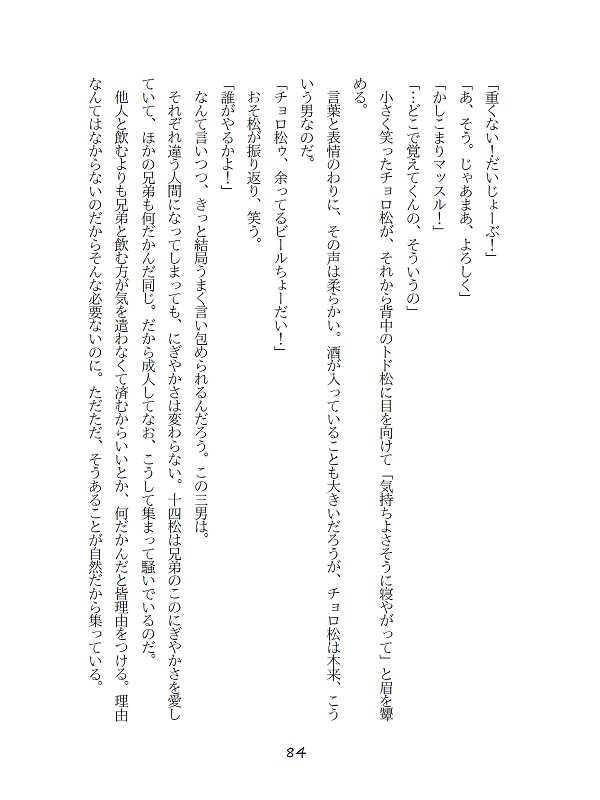 「重くない！だいじょーぶ！」
「あ、そう。じゃあまあ、よろしく」
「かしこまりマッスル！」
「…どこで覚えてくんの、そういうの」
　小さく笑ったチョロ松が、それから背中のトド松に目を向けて「気持ちよさそうに寝やがって」と眉を顰
める。
　言葉と表情のわりに、その声は柔らかい。酒が入っていることも大きいだろうが、チョロ松は本来、こう
いう男なのだ。
「チョロ松ゥ、余ってるビールちょーだい！」
　おそ松が振り返り、笑う。
「誰がやるかよ！」
　なんて言いつつ、きっと結局うまく言い包められるんだろう。この三男は。
　それぞれ違う人間になってしまっても、にぎやかさは変わらない。十四松は兄弟のこのにぎやかさを愛し
ていて、ほかの兄弟も何だかんだ同じ。だから成人してなお、こうして集まって騒いでいるのだ。
　他人と飲むよりも兄弟と飲む方が気を遣わなくて済むからいいとか、何だかんだと皆理由をつける。理由
なんてはなからないのだからそんな必要ないのに。ただただ、そうあることが自然だから集っている。
84